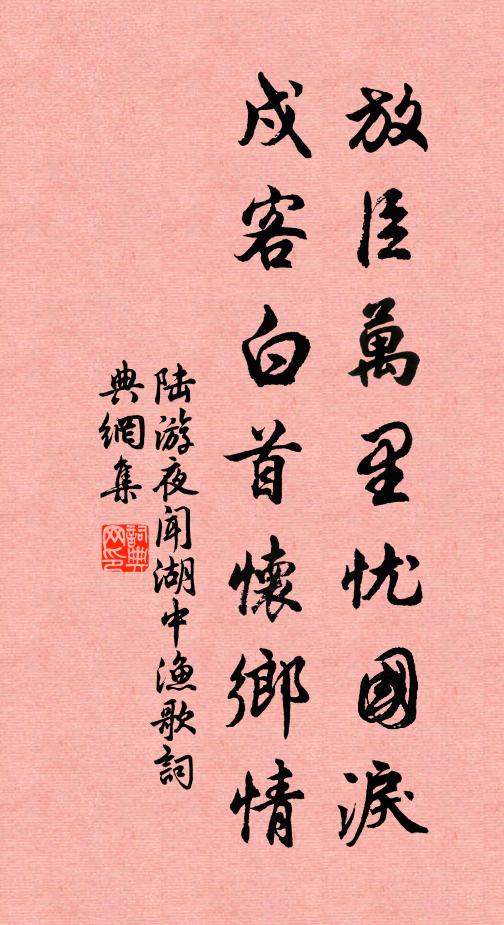 放臣萬里忧國淚
戍客白首懷鄉情
陆游夜闻湖中渔歌詞
典網集
詞典网印